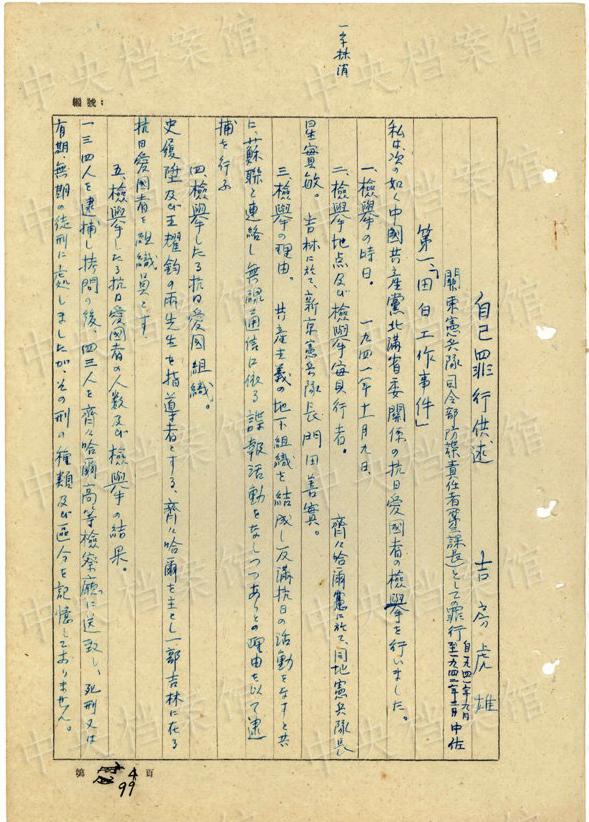 自己罪行供述
吉房虎雄
関東憲兵隊司令部防諜責任者(第三課長)としての罪行 自一九四一年九月 至一九四二年 月 中佐
第一、「田白工作事件」
私は次の如く中國共産黨北満省委関係の抗日愛國者の檢擧を行いました。
一、檢擧の時日。 一九四一年十一月九日、
二、檢擧地点及び檢擧実行者。 齊々哈爾憲に於て、同地憲兵隊長
星実敏。 吉林に於て、新京憲兵隊長門田善実。
三、檢擧の理由。 共産主義の地下組織を結成し反満抗日の活動をなすと共
に、蘇聯と連絡し無線通信に依る諜報活動をなしつつありとの理由を以て逮
捕を行ふ
四、檢擧したる抗日愛國組織。
史履陞及び王耀鈞の両先生を指導者とする、齊々哈爾を主とし一部吉林に在る
抗日愛國者を組織員とす。
五、檢擧したる抗日愛國者の人数及び檢擧の結果。
一三四人を逮捕し拷問の後、四三人を齊々哈爾高等檢察廳に送致し、死刑又は
有期、無期の徒刑に処しましたが、その刑の種類及び區分を記憶してありません。
編號:
第 4 頁
99
中央档案馆
中央档案馆
中央档案馆
中央档案馆
中央档案馆
中央档案馆